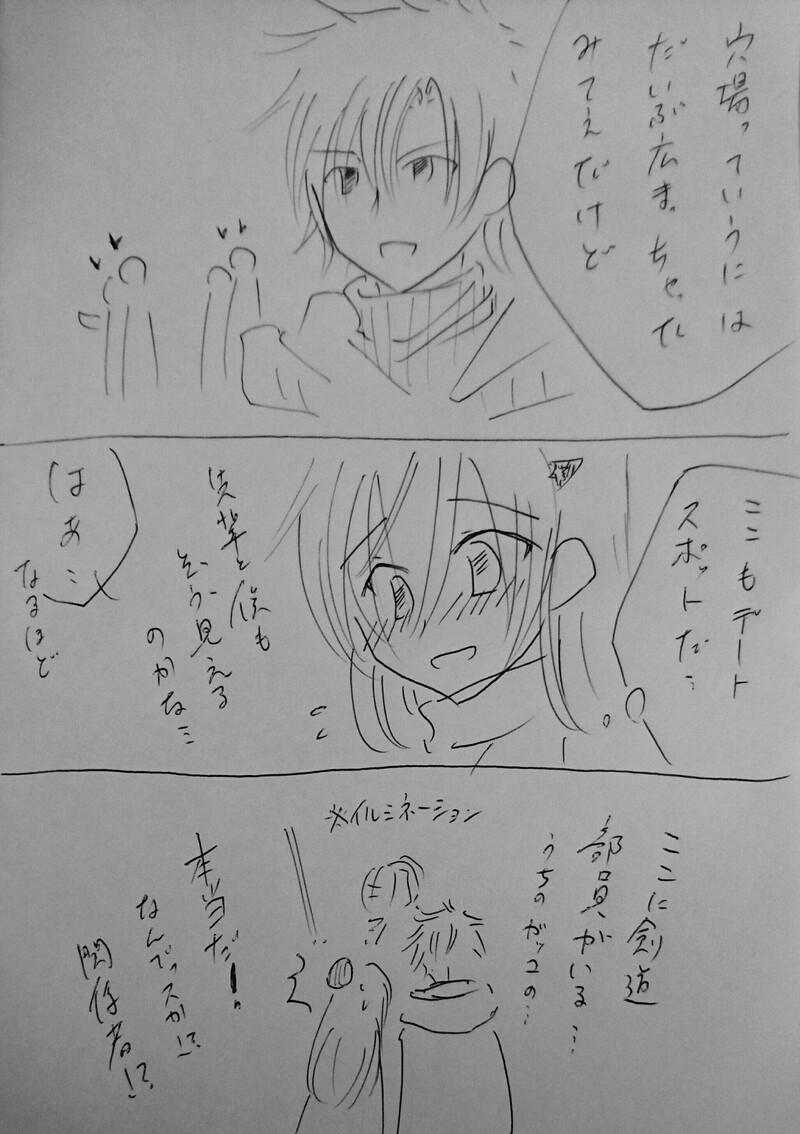 穴場っていうには
だいぶ広まっちゃってる
みてえだけど
ここもデート
スポットだ…
先輩と僕も
そう見える
のかな…
はあ…
なるほど
※イルミネーション
ここに剣道
部員がいる…
うちのガッコの…
本当だ!
なんでっスか!?
関係者!?